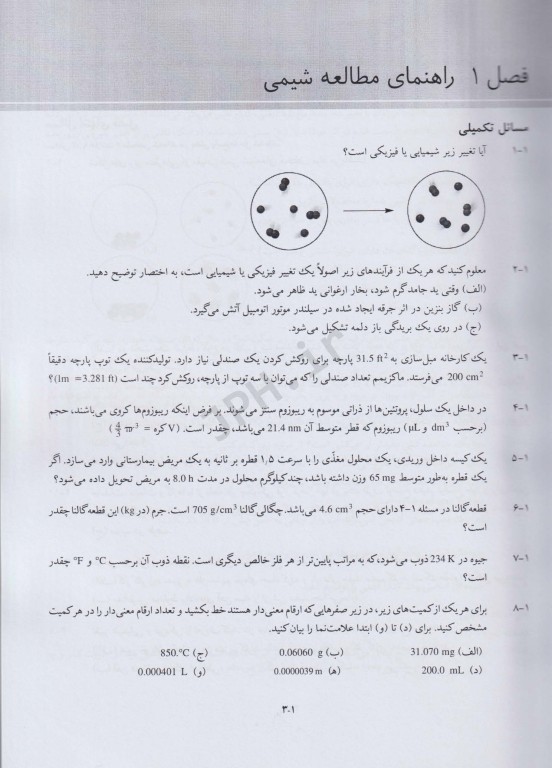 فصل ۱ راهنمای مطالعه شیمی
مسائل تکمیلی
۱-۱ آیا تغییر زیر شیمیایی یا فیزیکی است؟
۱-۲ معلوم کنید که هر یک از فرآیندهای زیر اصولاً یک تغییر فیزیکی یا شیمیایی است، به اختصار توضیح دهید.
(الف) وقتی ید جامد گرم شود، بخار ارغوانی ید ظاهر می‌شود.
(ب) گاز بنزین در اثر جرقه ایجاد شده در سیلندر موتور اتومبیل آتش می‌گیرد.
(ج) در روی یک بریدگی باز دلمه تشکیل می‌شود.
۱-۳ یک کارخانه مبل‌سازی به 31.5 ft² پارچه برای روکش کردن یک صندلی نیاز دارد. تولیدکننده یک توپ پارچه دقیقاً
200 cm² می‌فرستد. ماکزیمم تعداد صندلی را که می‌توان با سه توپ از پارچه، روکش کرد چند است (1m = 3.281 ft)؟
۱-۴ در داخل یک سلول، پروتئین‌ها از ذراتی موسوم به ریبوزوم سنتز می‌شوند. بر فرض اینکه ریبوزوم‌ها کروی می‌باشند، حجم
(برحسب dm³ و µL) ریبوزوم که قطر متوسط آن 21.4 nm می‌باشد، چقدر است. (V کره = 4/3 πr³)
۱-۵ یک کیسه داخل وریدی، یک محلول مغذّی را با سرعت ۱٫۵ قطره بر ثانیه به یک مریض بیمارستانی وارد می‌سازد. اگر
یک قطره به‌طور متوسط 65 mg وزن داشته باشد، چند کیلوگرم محلول در مدت 8.0 h به مریض تحویل داده می‌شود؟
۱-۶ قطعه گالنا در مسئله ۴-۱ دارای حجم 4.6 cm³ می‌باشد. چگالی گالنا 705 g/cm³ است. جرم (در kg) این قطعه گالنا چقدر
است؟
۱-۷ جیوه در 234 K ذوب می‌شود، که به مراتب پایین‌تر از هر فلز خالص دیگری است. نقطه ذوب آن برحسب °C و °F چقدر
است؟
۱-۸ برای هر یک از کمیت‌های زیر، در زیر صفرهایی که ارقام معنی‌دار هستند خط بکشید و تعداد ارقام معنی‌دار را در هر کمیت
مشخص کنید. برای (د) تا (و) ابتدا علامت‌نما را بیان کنید.
(الف) 31.070 mg (ب) 0.06060 g (ج) 850.°C
(د) 200.0 mL (ه) 0.0000039 m (و) 0.000401 L
۳۰۱
JPH.ir